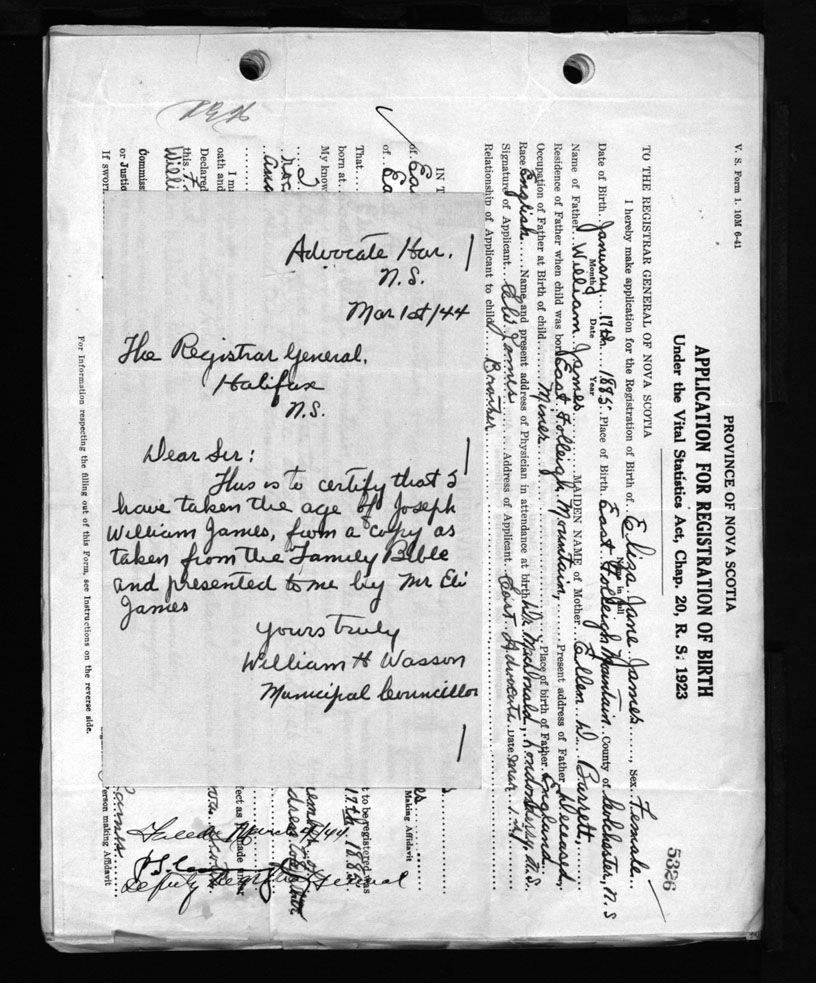 V. S. Form 1. 10M 6-41
PROVINCE OF NOVA SCOTIA
APPLICATION FOR REGISTRATION OF BIRTH
Under the Vital Statistics Act, Chap. 20, R. S. 1923
5326
TO THE REGISTRAR GENERAL OF NOVA SCOTIA
I hereby make application for the Registration of Birth of Eliza Jane James, Sex Female
Name in full
Date of Birth January 17th 1885 Place of Birth East Folleigh Mountain County of Colchester, N.S
Month Date Year
Name of Father William James MAIDEN NAME of Mother Ellen W. Barrett,
Residence of Father when child was born East Folleigh Mountain, Present address of Father Deceased,
Occupation of Father at Birth of child Miner Place of birth of Father England
Race English Name and present address of Physician in attendance at birth Dr. MacDonald, Londonderry, N.S.
Signature of Applicant Eli James Address of Applicant East Advocate Date Mar 1.
Relationship of Applicant to child Brother
IN T
of Ea
of
That
born at
t to be registered was
17th 1885
My know
I
I ma
oath and
fect as made under
Declared
this
Willi
Commiss
or Justice
If sworn
Making Affidavit
erson making Affidavit
Filed March 4/44
Deputy Registrar General
For Information respecting the filling out of this Form, see Instructions on the reverse side.
Advocate Har.
N.S.
Mar 1st/44
The Registrar General,
Halifax
N.S.
Dear Sir:
This is to certify that I
have taken the age of Joseph
William James, from a copy as
taken from the Family Bible
and presented to me by Mr Eli
James
Yours truly
William H Wasson
Municipal Councillor